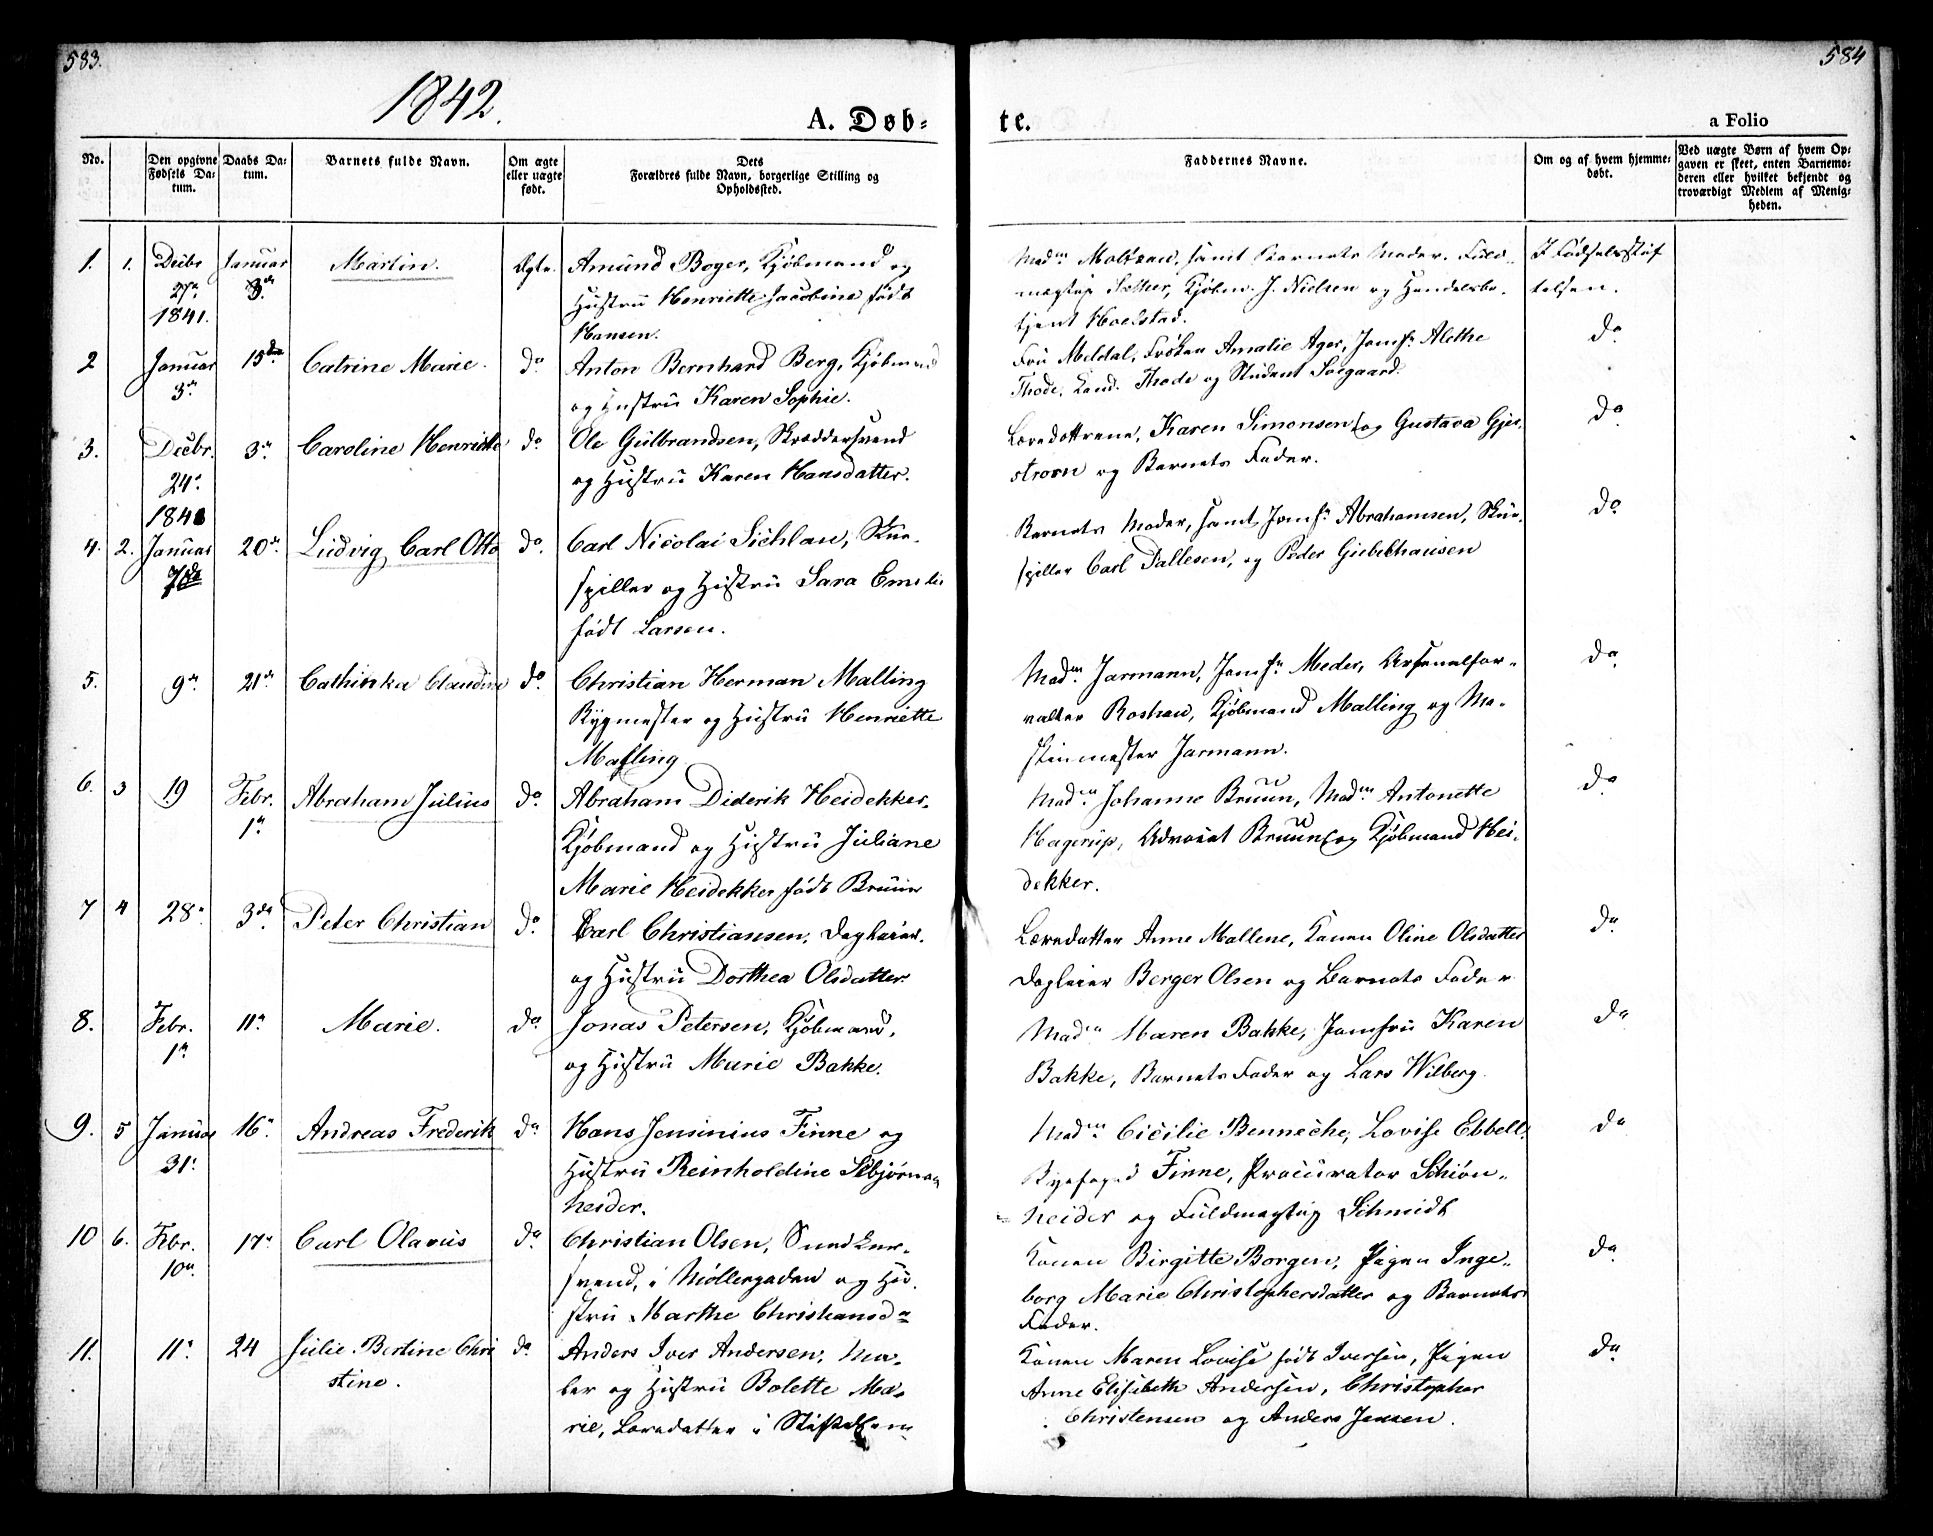 583.
584
1842.
A. Døb=
te.
a Folio
No.
Den opgivne Fødsels Da=tum.
Daabs Da=tum.
Barnets fulde Navn.
Om ægte eller uægte født.
Dets
Forældres fulde Navn, borgerlige Stilling og
Opholdssted.
Faddernes Navne.
Om og af hvem hjemme=døbt.
Ved uægte Børn af hvem Op=
gaven er skeet, enten Barnemo=
deren eller hvilket bekjendt og
troværdigt Medlem af Menig=
heden.
1. 1. Decbr 27de 1841. Januar 3de Martin. Ægte. Amund Boger, Kjøbmand og
Hustru Henriette Jacobine født
Hansen.
Madm samt Barnets Moder. Fuld-
mægtig Kjøbm. J. Nielsen og Handelsbe-
tjent Hoelstad.
I Fødselsstif
telsen.
2 Januar 3de 15de Catrine Marie. do Anton Bernhard Berg, Kjøbmand
og Hustru Karen Sophie.
Fru Meldal, Frøken Amalie Ager, Jomfr Alethe
Thode, Cand. Thode og Student Søegaard.
do
3. Decbr. 24de 1841 3de Caroline Henriette do Ole Gulbrandsen, Skræddersvend
og Hustru Karen Hansdatter.
Læredottrene, Karen Simonsen og Gustava Gjer-
strøm og Barnets Fader.
do
4. 2. Januar 7de 20de Ludvig Carl Otto do. Carl Nicolai Sichlau, Skue-
spiller og Hustru Sara Emilie
født Larsen.
Barnets Moder, samt Jomfr Abrahamsen, Skue-
spiller Carl Pallesen, og Peder Giebelhausen
do
5. 9de 21de Cathinka Claudine do. Christian Herman Malling
Rygmester og Hustru Henriette
Malling
Madm. Jarmann, Jomfr Meder, Arsenalfor-
valter Roshau, Kjøbmand Malling og Ma-
skinmester Jarmann.
do
6. 3 19 Febr. 1de Abraham Julius do Abraham Diderik Heidekker-
Kjøbmand og Hustru Juliane
Marie Heidekker født Bruun
Madm Johanne Bruun, Madm Antonette
Hagerup, Advocat Bruun og Kjøbmand Hei-
dekker.
do
7 4 28de 3de Peter Christian do. Carl Christiansen, Dagleier.
og Hustru Dorthea Olsdatter.
Læredatter Anne Mallene, Konen Oline Olsdatter
Dagleier Berger Olsen og Barnets Fader
do
8. Febr. 1de 11te Marie. do Jonas Petersen, Kjøbmand,
og Hustru Marie Bakke.
Madm Maren Bakke, Jomfru Karen
Bakke, Barnets Fader og Lars Wilberg.
do
9. 5 Januar 31. 16de Andreas Frederik do Hans Jensinius Finne og
Hustru Reinholdine
heider.
Madm Cicilie Benneche, Lovise Ebbell,
Byefoged Finne, Procurator Schiøn-
heider og Fuldmægtig Schmidt
do
10 6. Febr. 10de 17de Carl Olavus do Christian Olsen, Snedker-
svend, i Møllergaden og Hu-
stru Marthe Christiansd.
Konen Birgitte Borgen, Pigen Inge-
borg Marie Christophersdatter og Barnets
Fader.
do
11. 11te 24 Julie Bertine Chri
stine.
do. Anders Iver Andersen, Ma-
ler og Hustru Bolette Ma-
rie, Læredatter i Stiftelsen
Konen Maren Lovise født Iversen, Pigen
Anne Elisabeth Andersen, Christopher
Christensen og Anders Jensen.
do